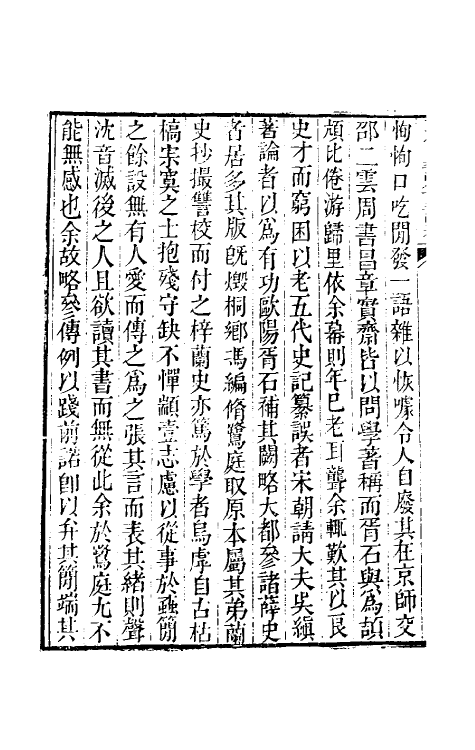 恂恂口吃閒發一語雜以恢噱令人自廢其在京師交
邵二雲周書昌章實齋皆以問學著稱而胥石與爲頡
頏比倦游歸里依余幕則年已老耳聾余輒歎其以良
史才而窮困以老五代史記纂誤者宋朝請大夫吳縝
著論者以爲有功歐陽胥石補其闕略大都參諸薛史
者居多其版旣燬桐鄉馮編脩鷺庭取原本屬其弟蘭
史抄撮讐校而付之梓蘭史亦篤於學者烏虖自古枯
槁宗寞之士抱殘守缺不憚顓壹志慮以從事於蟲簡
之餘設無有人愛而傳之爲之張其言而表其緒則聲
沈音滅後之人且欲讀其書而無從此余於鷺庭尤不
能無感也余故略參傳例以踐前諾卽以弁其簡端其